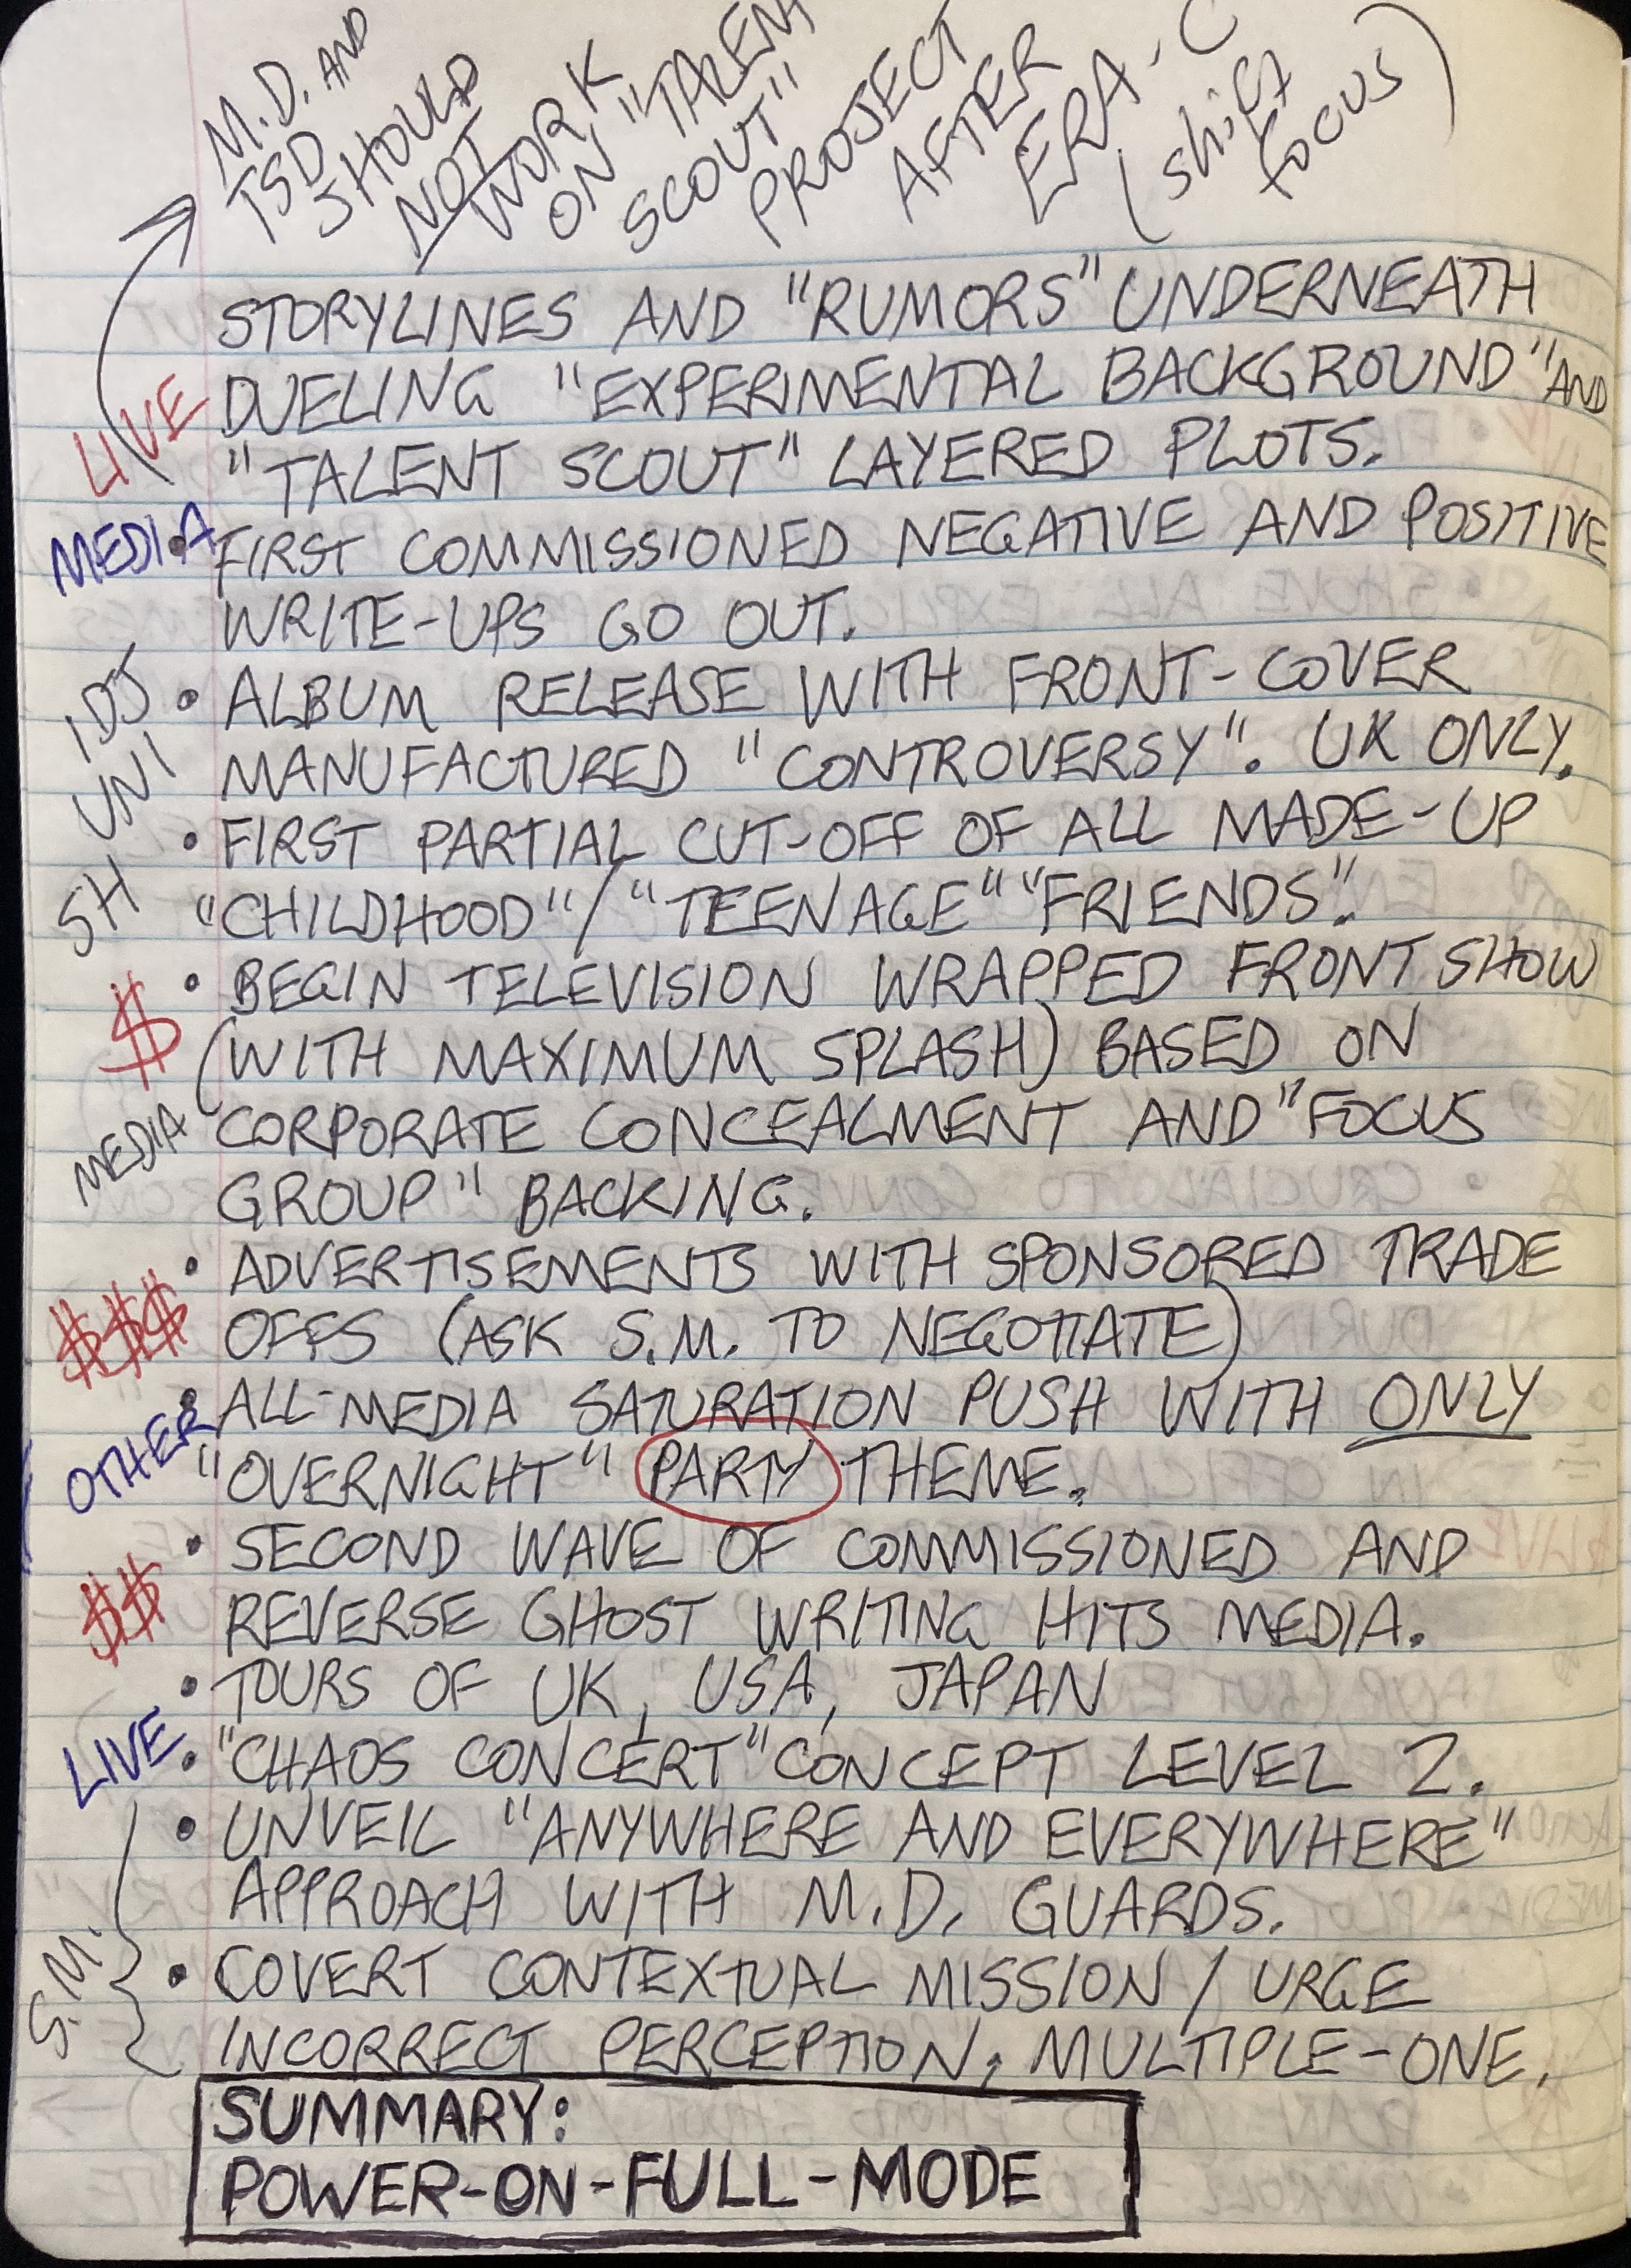 M.D. AND
TSD
SHOULD
NOT
WORK
ON "TALENT
SCOUT"
PROJECT
AFTER
ERA-C
(shift
focus)
STORYLINES AND "RUMORS" UNDERNEATH
LIVE DUELING "EXPERIMENTAL BACKGROUND" AND
"TALENT SCOUT" LAYERED PLOTS.
MEDIA • FIRST COMMISSIONED NEGATIVE AND POSITIVE
WRITE-UPS GO OUT.
IDJ • ALBUM RELEASE WITH FRONT-COVER
UNI MANUFACTURED "CONTROVERSY". UK ONLY.
• FIRST PARTIAL CUT-OFF OF ALL MADE-UP
SH "CHILDHOOD"/"TEENAGE" "FRIENDS".
$ • BEGIN TELEVISION WRAPPED FRONT SHOW
(WITH MAXIMUM SPLASH) BASED ON
MEDIA CORPORATE CONCEALMENT AND "FOCUS
GROUP" BACKING.
$$$ • ADVERTISEMENTS WITH SPONSORED TRADE
OFFS (ASK S.M. TO NEGOTIATE)
OTHER • ALL-MEDIA SATURATION PUSH WITH ONLY
"OVERNIGHT" PARTY THEME.
$$ • SECOND WAVE OF COMMISSIONED AND
REVERSE GHOST WRITING HITS MEDIA.
• TOURS OF UK, USA, JAPAN
LIVE • "CHAOS CONCERT" CONCEPT LEVEL 2.
• UNVEIL "ANYWHERE AND EVERYWHERE"
APPROACH WITH M.D. GUARDS.
S.M. • COVERT CONTEXTUAL MISSION / URGE
INCORRECT PERCEPTION, MULTIPLE-ONE.
SUMMARY:
POWER-ON-FULL-MODE